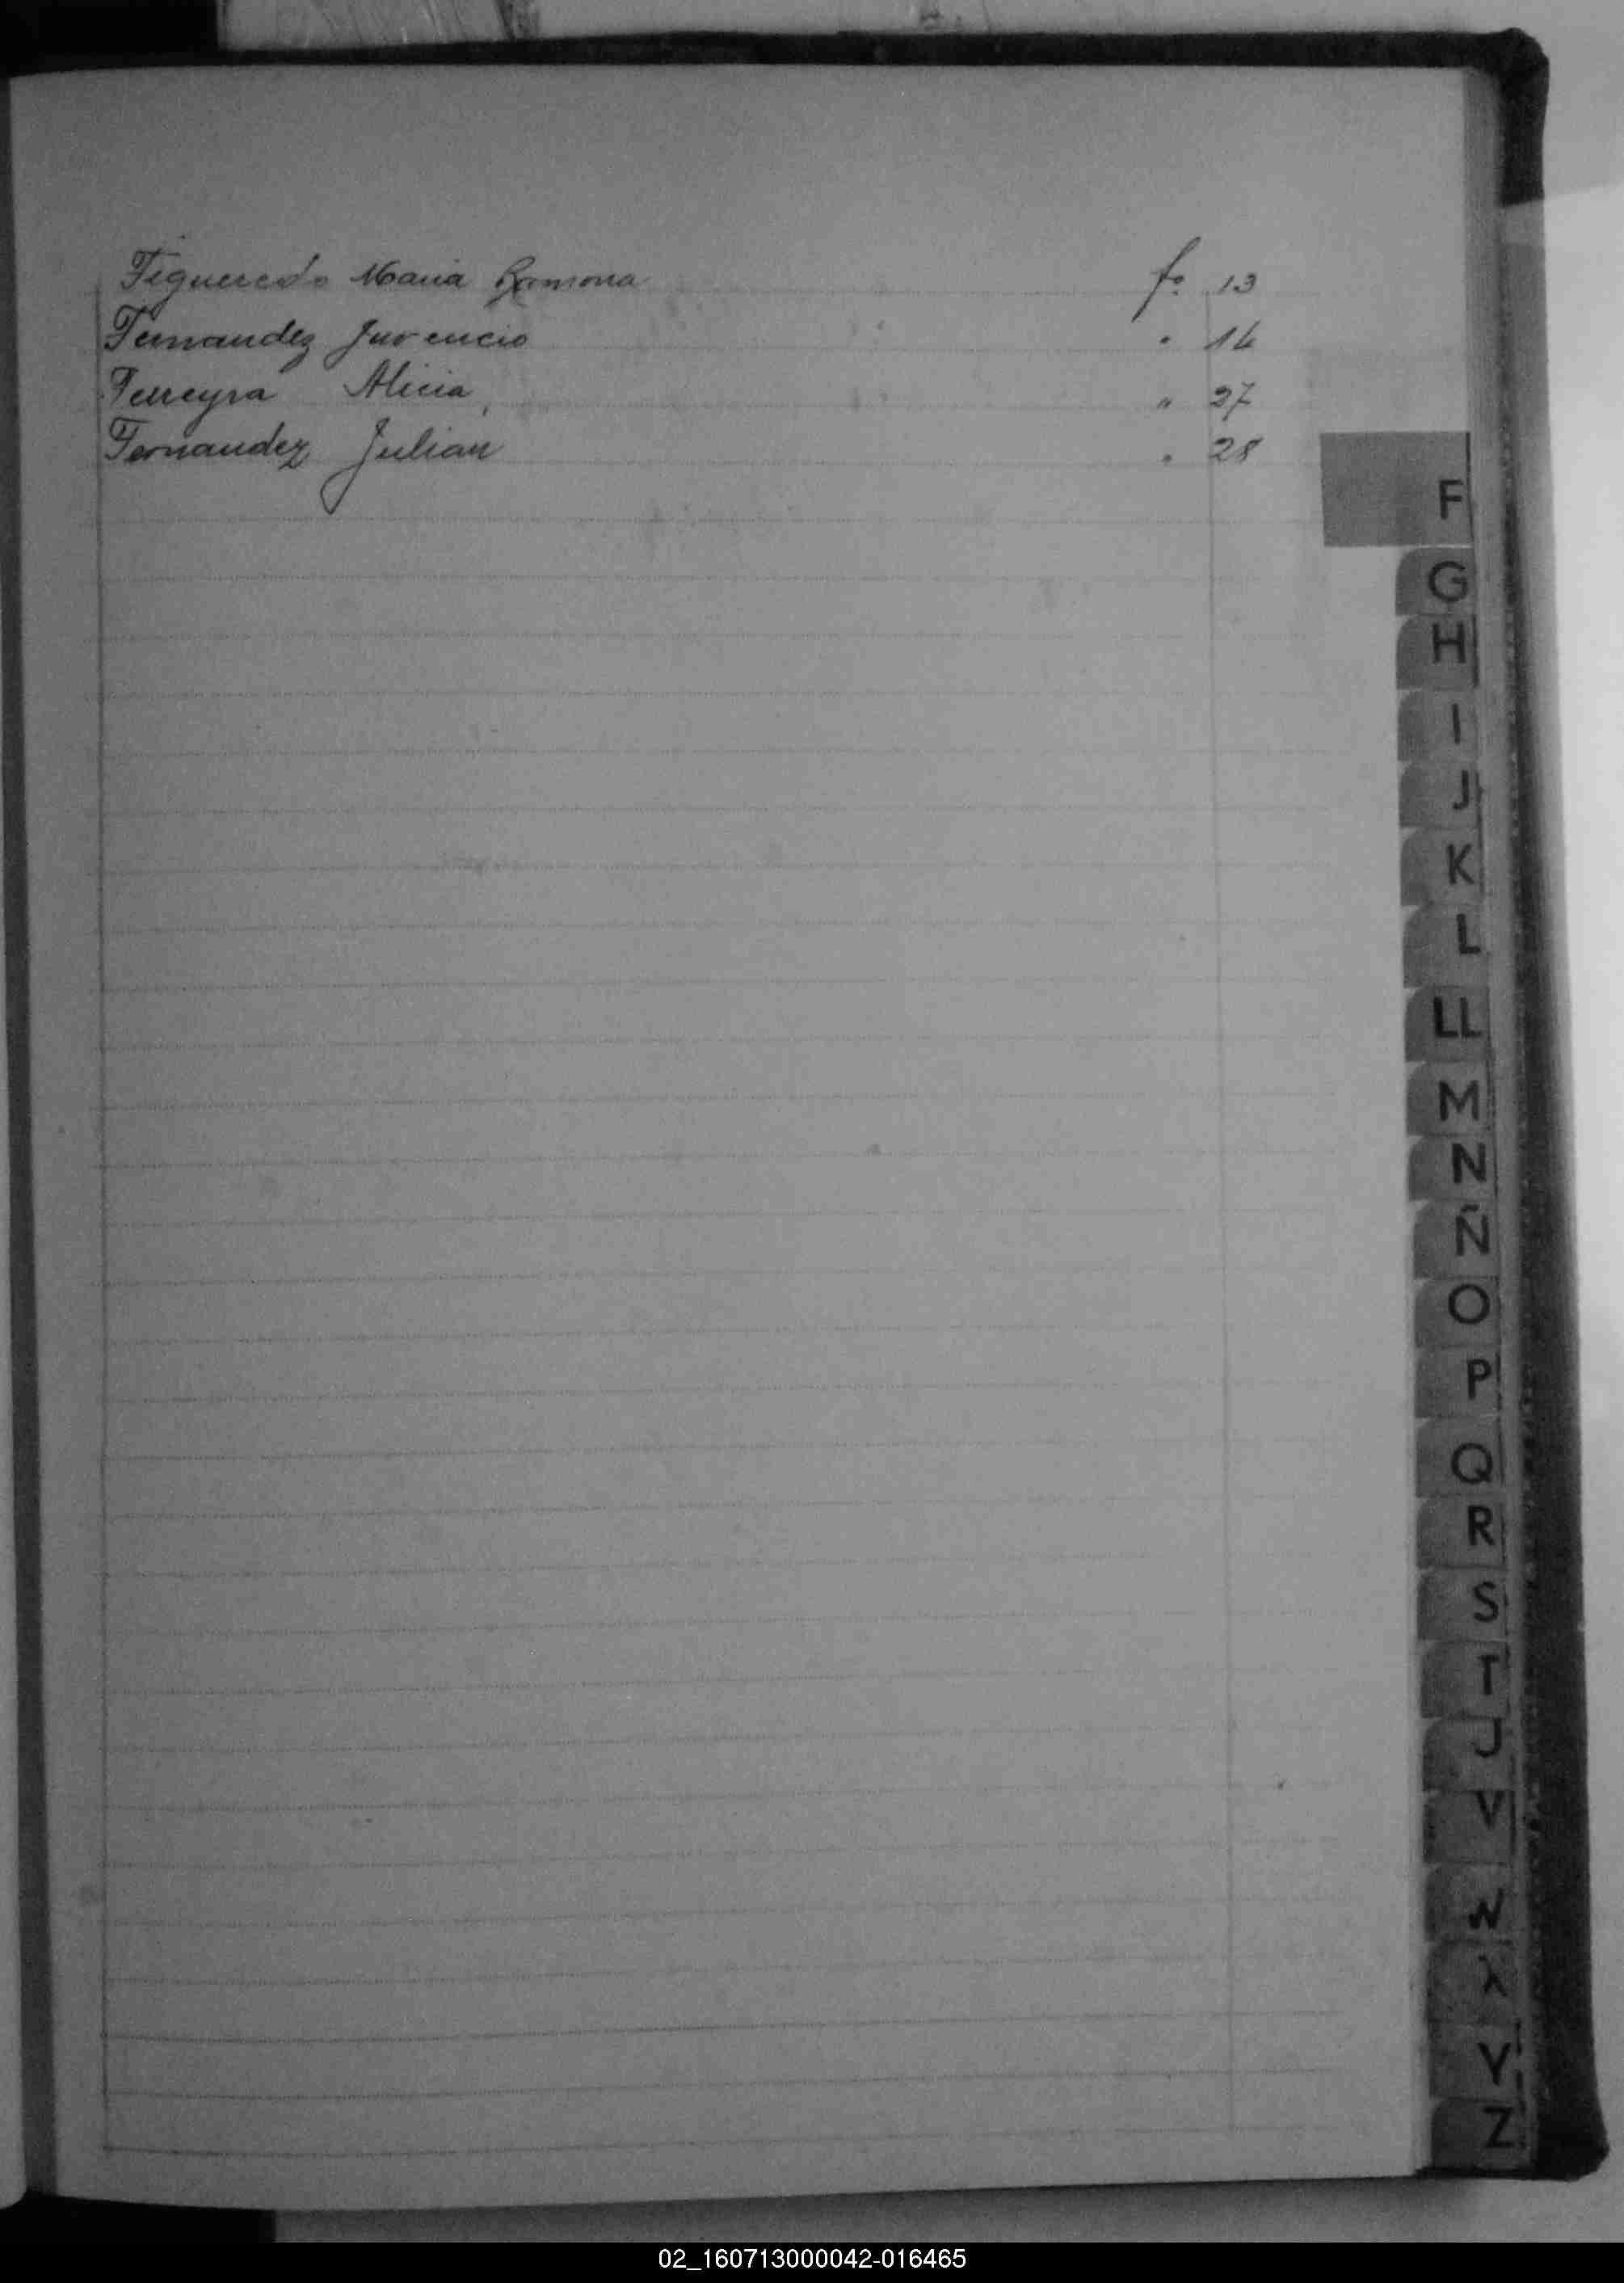 Figueredo Maria Ramona fo 13
Fernandez Juvencio " 14
Ferreyra Alicia " 27
Fernandez Julian " 28
F
G
H
I
J
K
L
LL
M
N
Ñ
O
P
Q
R
S
T
U
V
W
X
Y
Z
02_160713000042-016465